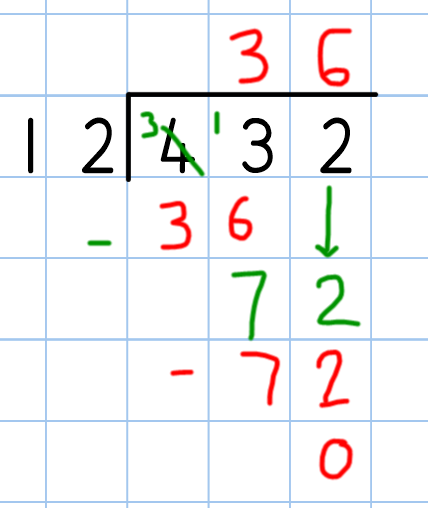 3 6
1 2 3 4 1 3 2
- 3 6 ↓
7 2
- 7 2
0